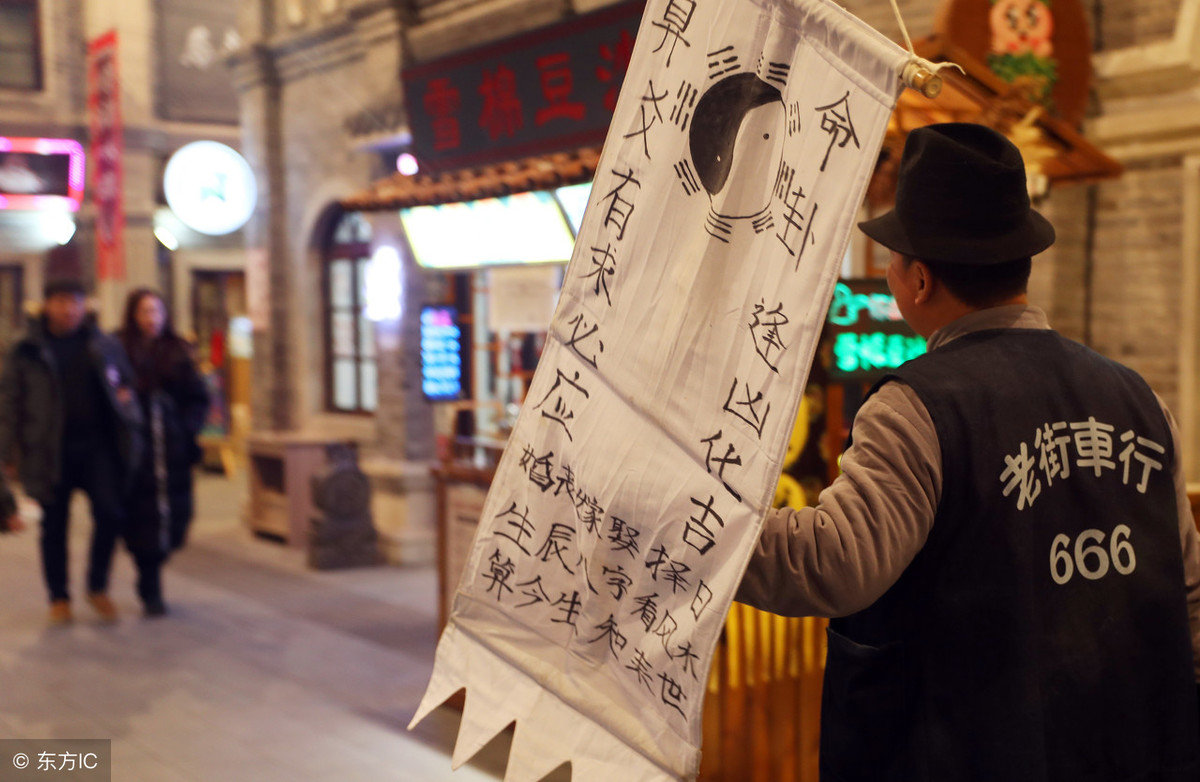 雪棉豆沙
命卦 逢凶化吉
爻 有求必应
婚丧嫁娶 择日
生辰八字 看风水
算今生 知来世
老街車行
666
© 东方IC